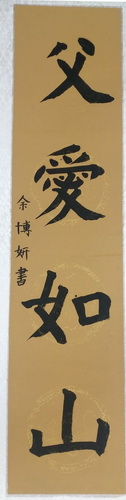 父愛如山
余博妍書